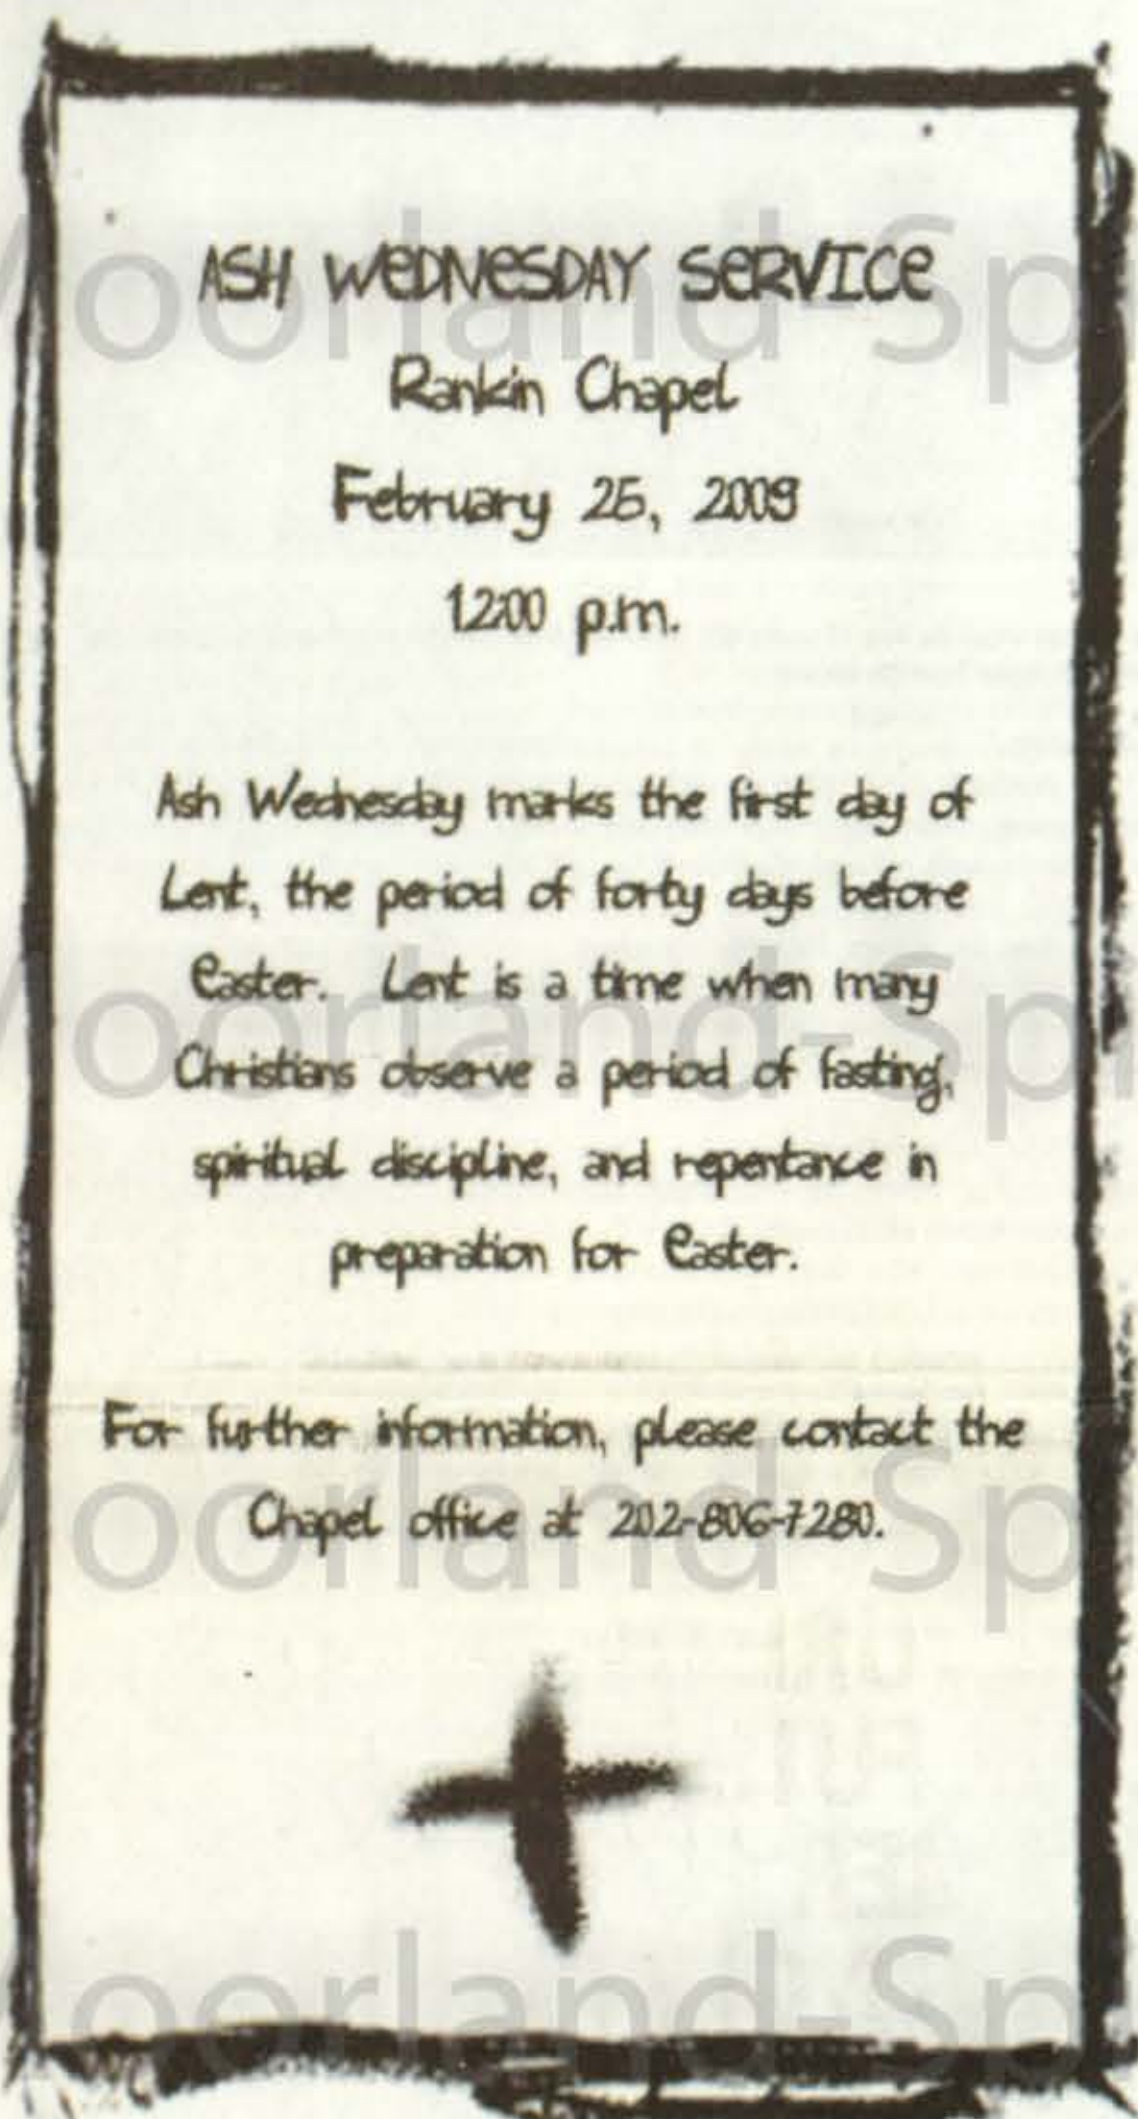 ASH WEDNESDAY SERVICE
Rankin Chapel
February 25, 2009
12:00 p.m.
Ash Wednesday marks the first day of
Lent, the period of forty days before
Easter. Lent is a time when many
Christians observe a period of fasting,
spiritual discipline, and repentance in
preparation for Easter.
For further information, please contact the
Chapel office at 202-806-7280.
oorland-Sp
oorland-Sp
oorland-Sp
oorland-Sp